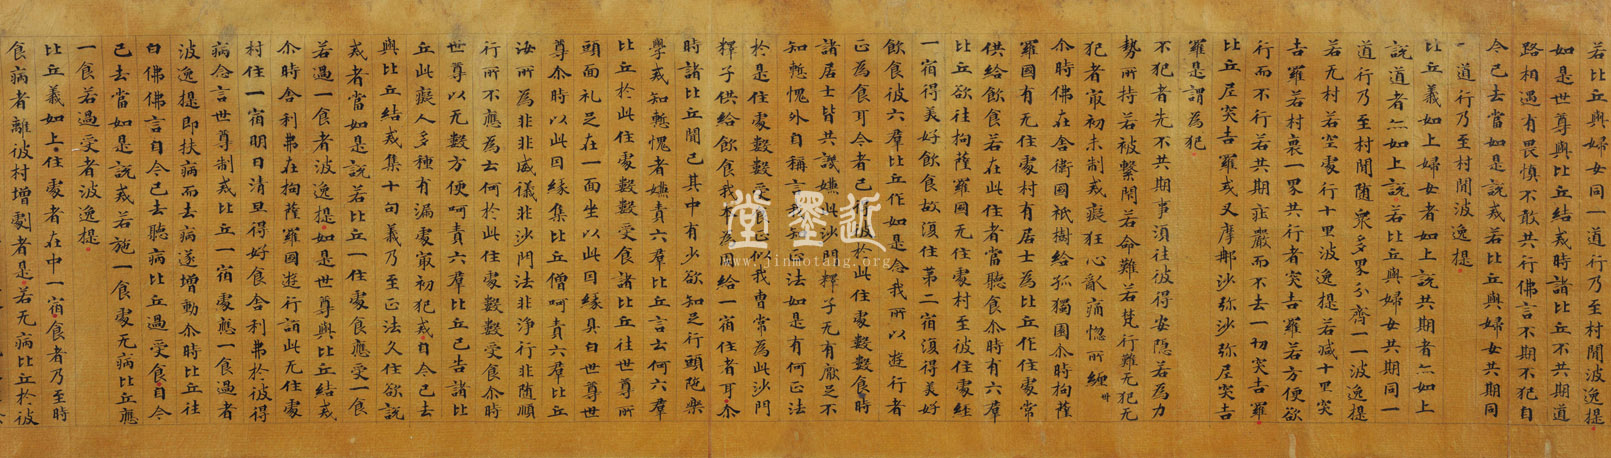 若比丘與婦女同一道行乃至村間波逸提
如是世尊與比丘結戒時諸比丘不共期道
路相遇有畏慎不敢共行佛言不期不犯自
今已去當如是說戒若比丘與婦女共期同
一道行乃至村間波逸提
比丘義如上婦女者如上說共期者亦如上
說道者亦如上說若比丘與婦女共期同一
道行乃至村間随衆多界分齊一一波逸提
若无村若空處行十里波逸提若減十里突
吉羅若村裏一界共行者突吉羅若方便欲
行而不行若共期莊嚴而不去一切突吉羅
比丘尼突吉羅式叉摩那沙弥沙弥尼突吉
羅是謂為犯
不犯者先不共期事湏往彼得安隱若為力
勢所持若被繫閇若命難若梵行難无犯无
犯者冣初未制戒癡狂心亂痛惱所纏 卅
尒時佛在舍衛國祇樹給孤獨園尒時拘薩
羅國有无住處村有居士為比丘作住處常
供給飲食若在此住者當聽食尒時有六羣
比丘欲往拘薩羅國无住處村至彼住處經
一宿得美好飲食故湏住第二宿湏得美好
飲食彼六羣比丘作如是念我所以遊行者
正為食耳今者已得彼於此住處數數食時
諸居士皆共譏嫌此沙門釋子无有猒足不
知慙愧外自稱言我知正法如是有何正法
於是住處數數受食正以我曹常為此沙門
釋子供給飲食我本為周給一宿住者耳尒
時諸比丘聞已其中有少欲知足行頭陁樂
學戒知慙愧者嫌責六羣比丘言云何六羣
比丘於此住處數數受食諸比丘往世尊所
頭面礼足在一面坐以此因緣具白世尊世
尊尒時以此因緣集比丘僧呵責六羣比丘
汝所為非非威儀非沙門法非淨行非随順
行所不應為云何於此住處數數受食尒時
世尊以无數方便呵責六羣比丘已告諸比
丘此癡人多種有漏處冣初犯戒自今已去
與比丘結戒集十句義乃至正法久住欲說
戒者當如是說若比丘一住處食應受一食
若過一食者波逸提如是世尊與比丘結戒
尒時舍利弗在拘薩羅國遊行詣此无住處
村住一宿明日清旦得好食舍利弗於彼得
病念言世尊制戒比丘一宿處應一食過者
波逸提即扶病而去病遂增動尒時比丘往
白佛佛言自今已去聽病比丘過受食自今
已去當如是說戒若施一食處无病比丘應
一食若過受者波逸提
比丘義如上住處者在中一宿食者乃至時
食病者離彼村增劇者是若无病比丘於彼
近墨堂
www.jinmotang.org